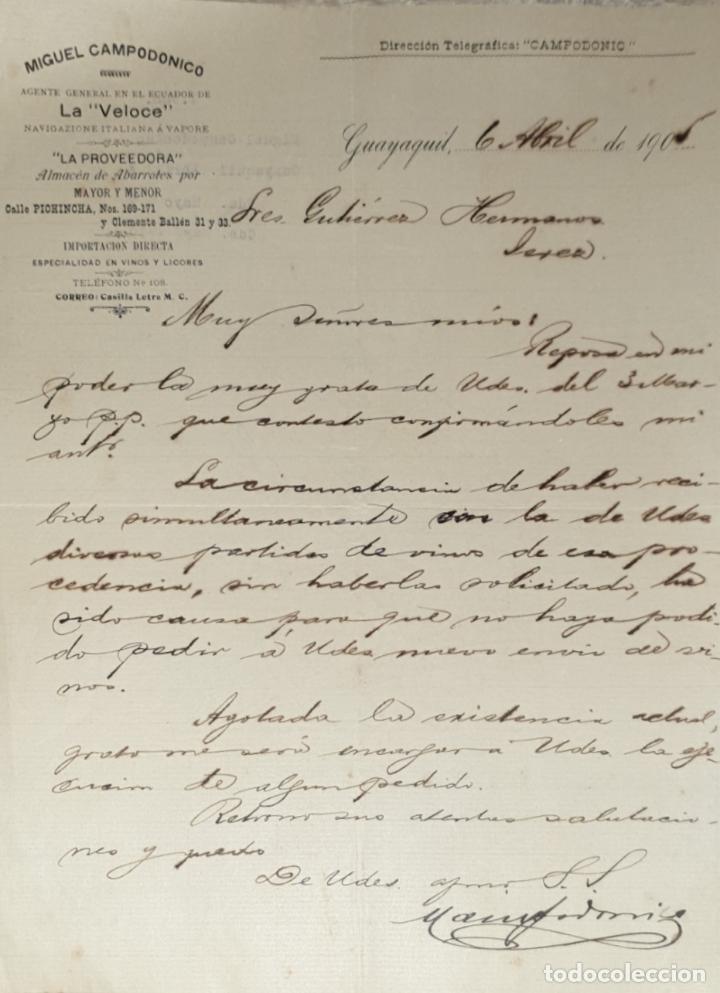 MIGUEL CAMPODONICO
AGENTE GENERAL EN EL ECUADOR DE
La "Veloce"
NAVIGAZIONE ITALIANA Á VAPORE
"LA PROVEEDORA"
Almacén de Abarrotes por
MAYOR Y MENOR
Calle PICHINCHA, Nos. 169-171
y Clemente Ballén 31 y 33.
IMPORTACION DIRECTA
ESPECIALIDAD EN VINOS Y LICORES
TELÉFONO Nº 108.
CORREO: Casilla Letra M. C.
Dirección Telegráfica: "CAMPODONIC"
Guayaquil, 6 Abril de 190
Sres. Gutiérrez Hermanos
Jerez.
Muy Señores mios:
Reposa en mi
poder la muy grata de Udes. del 3 Mar-
zo p.p. que contesto confirmándoles mi
antr.
La circunstancia de haber reci-
bido simultaneamente con la de Udes
diversas partidas de vinos de esa pro-
cedencia, sin haberlas solicitado, ha
sido causa para que no haya podi-
do pedir á Udes nuevo envio de vi-
nos.
Agotada la existencia actual,
grato me será encargar á Udes. la eje-
cucion de algun pedido.
Retorno sus atentas salutacio-
nes y quedo
De Udes. afmo. S. S.
MCampodonico
todocoleccion